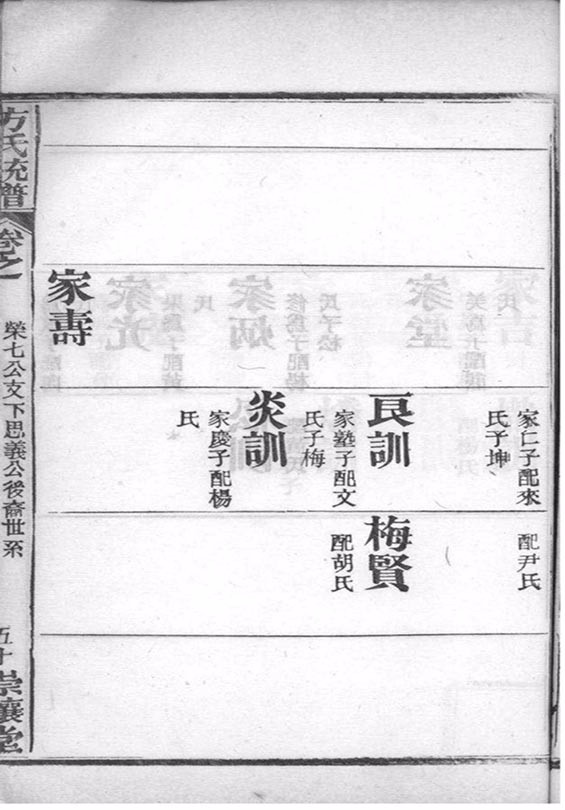 家仁子配來
氏子坤
配尹氏
良訓
家塾子配文
氏子梅
梅賢
配胡氏
炎訓
家慶子配楊
氏
家壽
方氏統譜
卷之一
榮七公支下思義公後裔世系
五十
崇讓堂